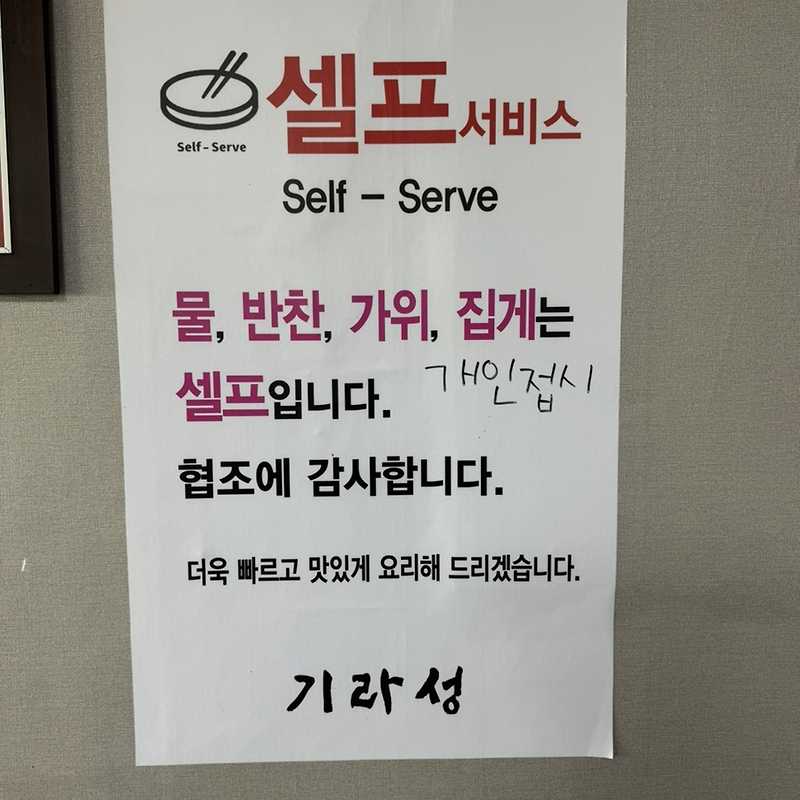 셀프서비스
Self-Serve
Self - Serve
물, 반찬, 가위, 집게는
셀프입니다. 개인접시
협조에 감사합니다.
더욱 빠르고 맛있게 요리해 드리겠습니다.
기라성